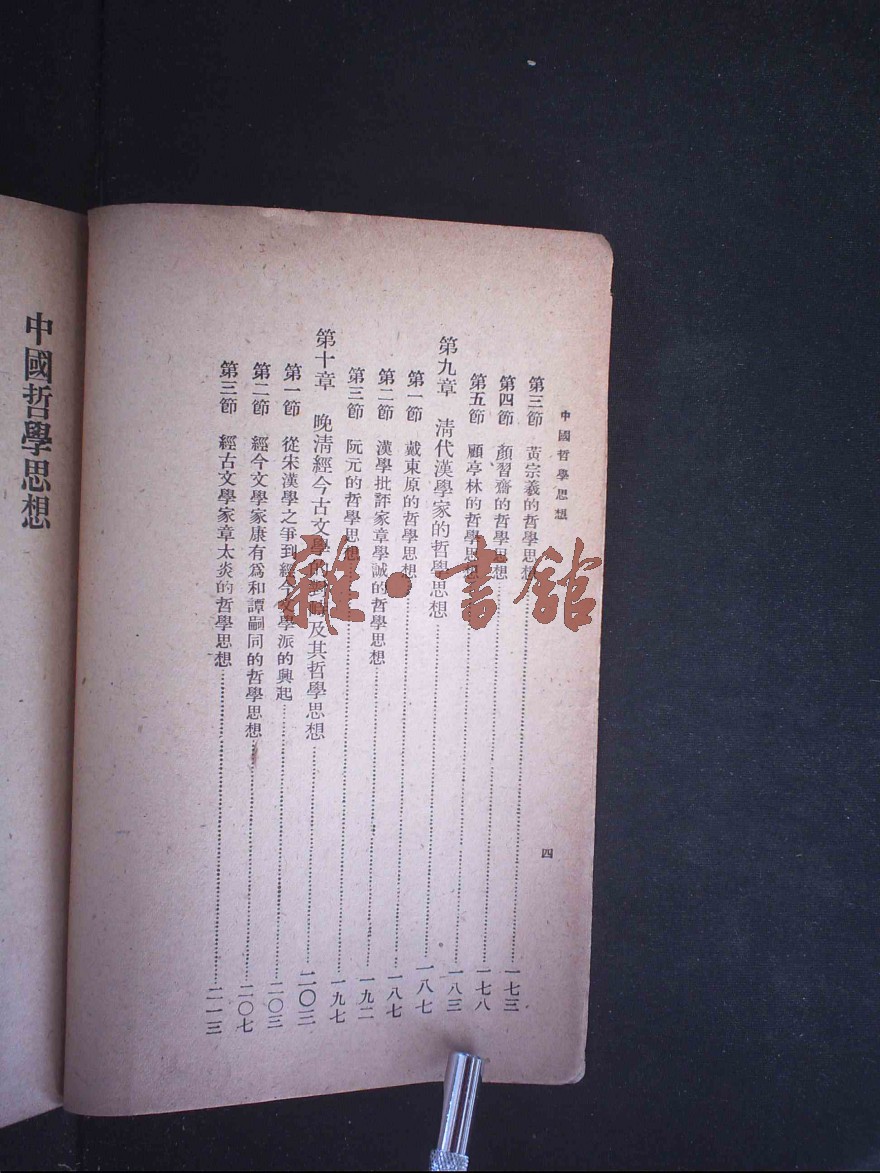 中國哲學思想
第三節 黃宗羲的哲學思想……一七三
第四節 顏習齋的哲學思想……一七八
第五節 顧亭林的哲學思想……一八三
第九章 清代漢學家的哲學思想……一八七
第一節 戴東原的哲學思想……一八七
第二節 漢學批評家章學誠的哲學思想……一九二
第三節 阮元的哲學思想……一九七
第十章 晚淸經今古文學的及其哲學思想……二〇三
第一節 從宋漢學之爭到經今文學派的興起……二〇三
第二節 經今文學家康有爲和譚嗣同的哲學思想……二〇七
第三節 經古文學家章太炎的哲學思想……二一三
四
中國哲學思想
雜·書館